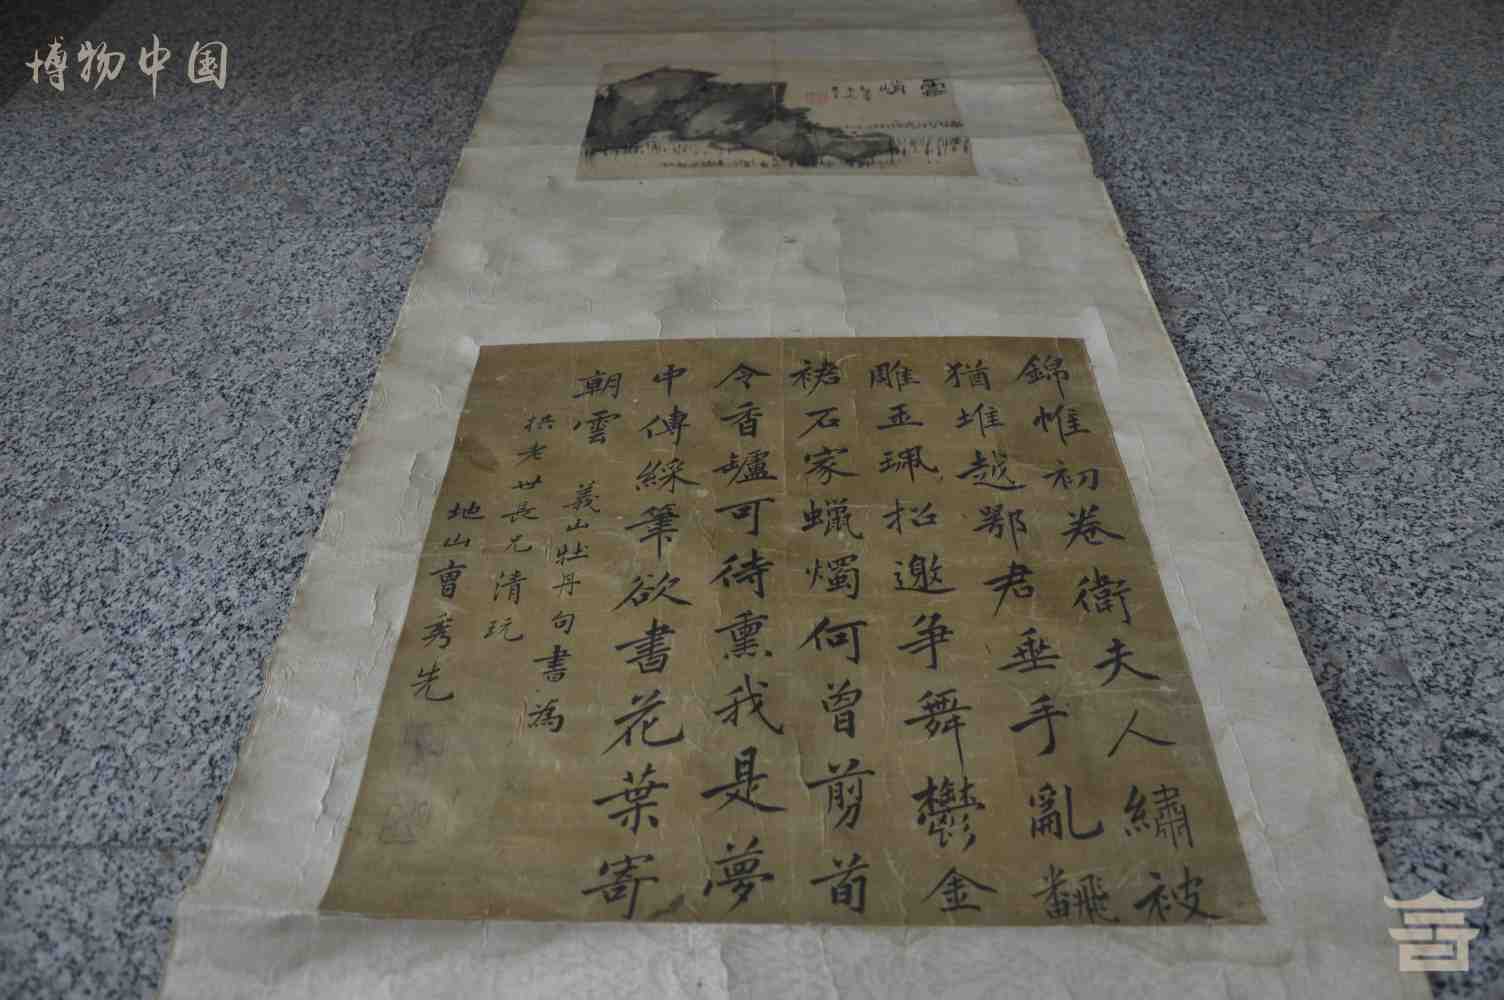 博物中国
錦惟初卷衛夫人繡被
猶堆越鄂君垂手亂飜
雕玉珮招邀爭舞鬱金
裙石家蠟燭何曾剪荀
令香罏可待熏我是夢
中傳綵筆欲書花葉寄
朝雲 義山牡丹句書為
老世長兄清玩
地山曹秀先